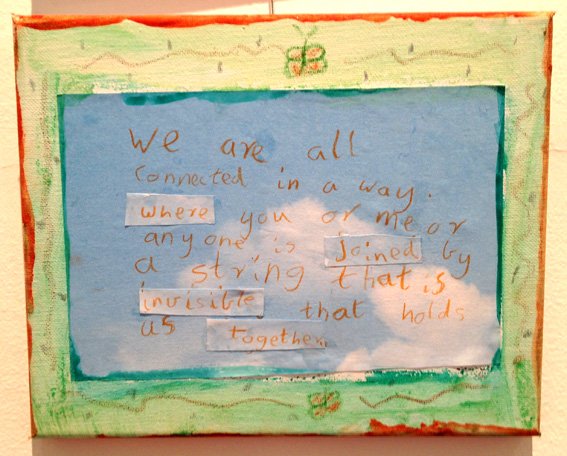 we are all
connected in a way.
where you or me or
anyone is joined by
a string that is
invisible that holds
us together.